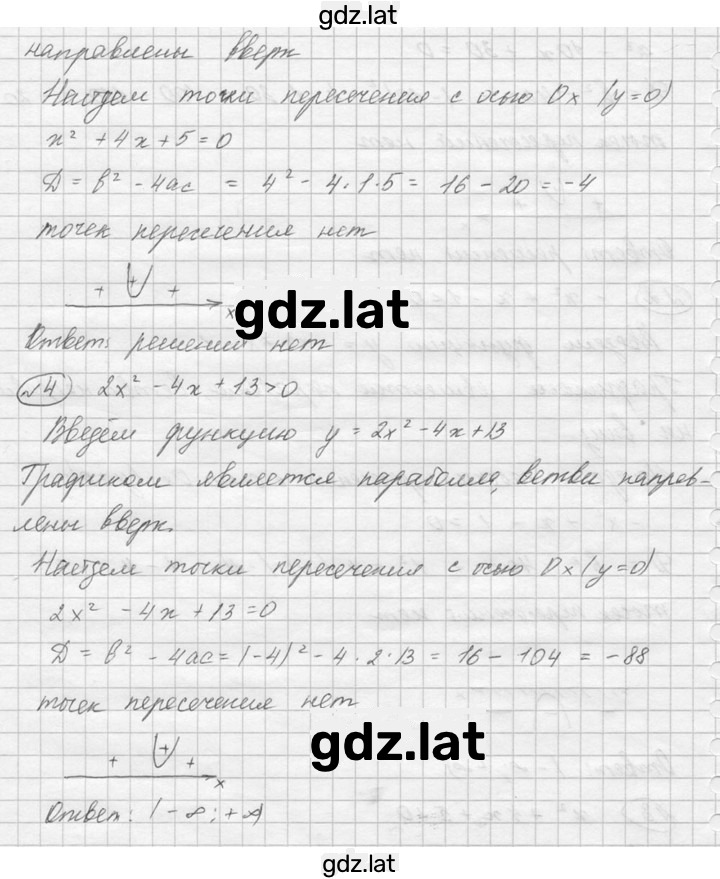 gdz.lat
направлены вверх
Найдем точки пересечения с осью Ox (y=0)
x² + 4x + 5 = 0
D = b² - 4ac = 4² - 4·1·5 = 16 - 20 = -4
точек пересечения нет
+ + + x
gdz.lat
Ответ: решений нет
№4 2x² - 4x + 13 > 0
Введём функцию y = 2x² - 4x + 13
Графиком является параболла, ветви направ-
лены вверх.
Найдем точки пересечения с осью Ox (y=0)
2x² - 4x + 13 = 0
D = b² - 4ac = (-4)² - 4·2·13 = 16 - 104 = -88
точек пересечения нет
gdz.lat
+ + + x
Ответ: (-∞; +∞)
gdz.lat